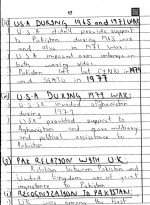 (ii) USA DURING 1965 and 1971 WAR:
U.S.A didn't provide support
to Pakistan during 1965
and also in 1971 war.
U.S.A imposed arms embargo in
both wars.
Pakistan left SEATO in
and in 1979
(iii) U.S.A DURING 1979 WAR:
U.S.S.R invaded Afghanistan
during 1979
U.S.A provided support to
Afghanistan and gave military
and political assistance to
Pakistan.
PAK RELATION WITH U.K:
Relation between Pakistan and
United Kingdom are of great
importance to Pakistan
(i) RECOGNIZATION TO PAKISTAN:
U.K was among the first